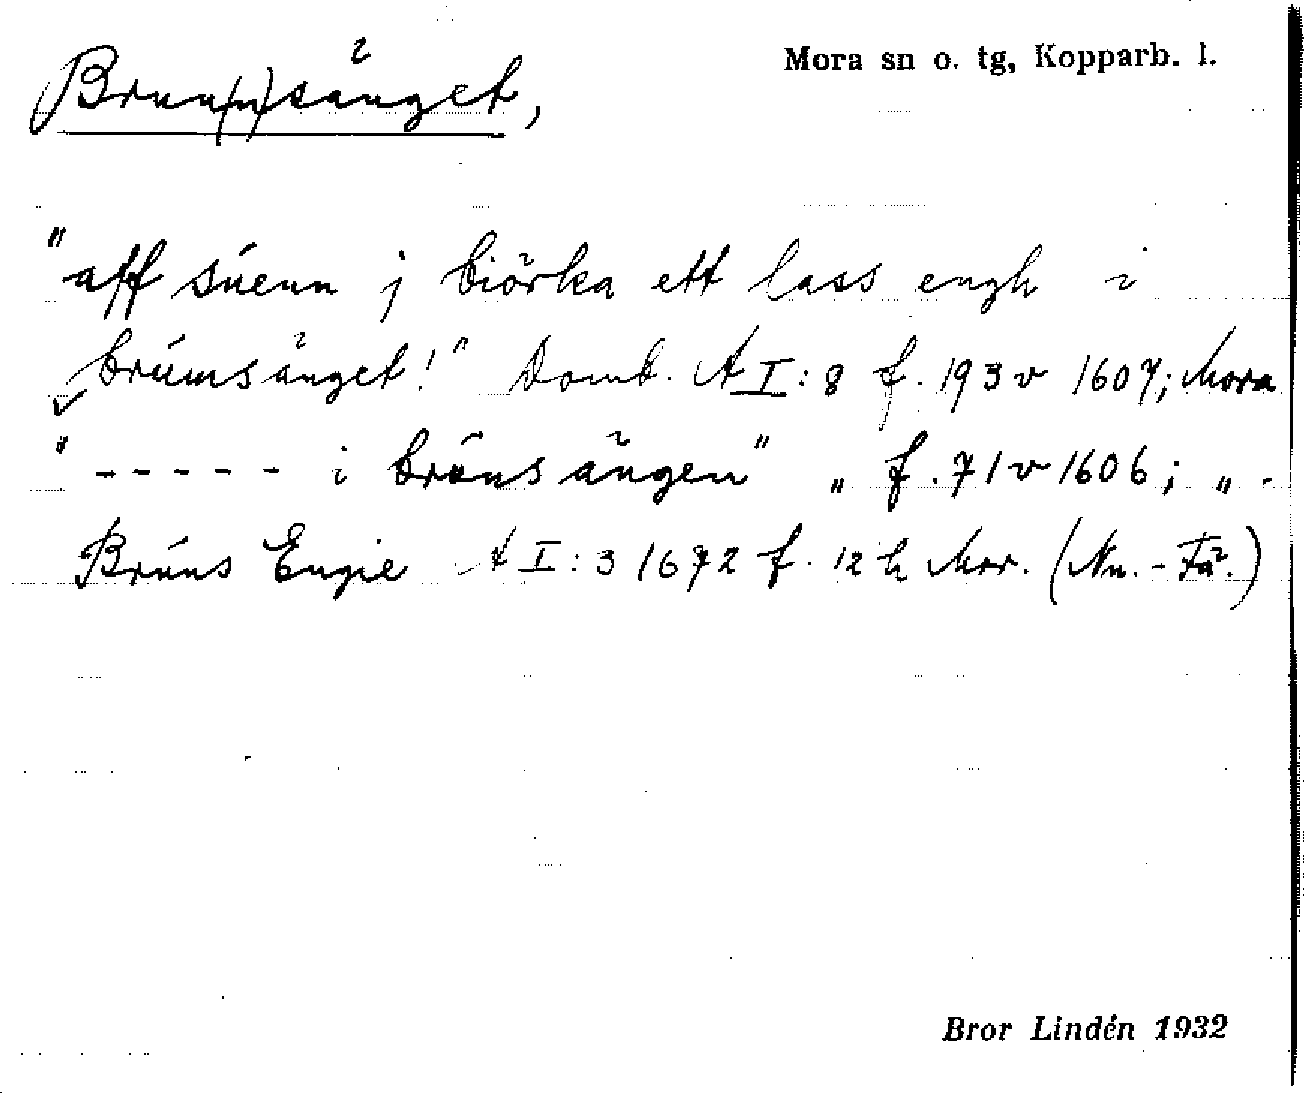 Brun(n)sänget,
Mora sn o. tg, Kopparb. l.
"aff súenn j biörka ett lass engh i
brúmsänget!" Domb. A I: 8 f. 193 v 1607; Mora
" - - - - - i brúnsängen" „ f. 71 v 1606; „ .
Brúns Engie A I: 3 1672 f. 12 h Mor. (Nu. - Fä.)
Bror Lindén 1932